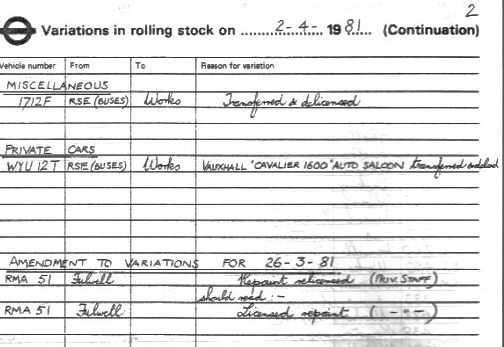 2
Variations in rolling stock on 2-4- 1981 (Continuation)
Vehicle number From To Reason for variation
MISCELLANEOUS
1712F RSE (BUSES) Works Transferred & delicensed
PRIVATE CARS
WYU 12T RSE (BUSES) Works VAUXHALL 'CAVALIER 1600' AUTO SALOON transferred
AMENDMENT TO VARIATIONS FOR 26-3-81
RMA 51 Fulwell Repaint relicensed (PRIV. STAFF)
should read :-
RMA 51 Fulwell Licensed repaint ( - " - )